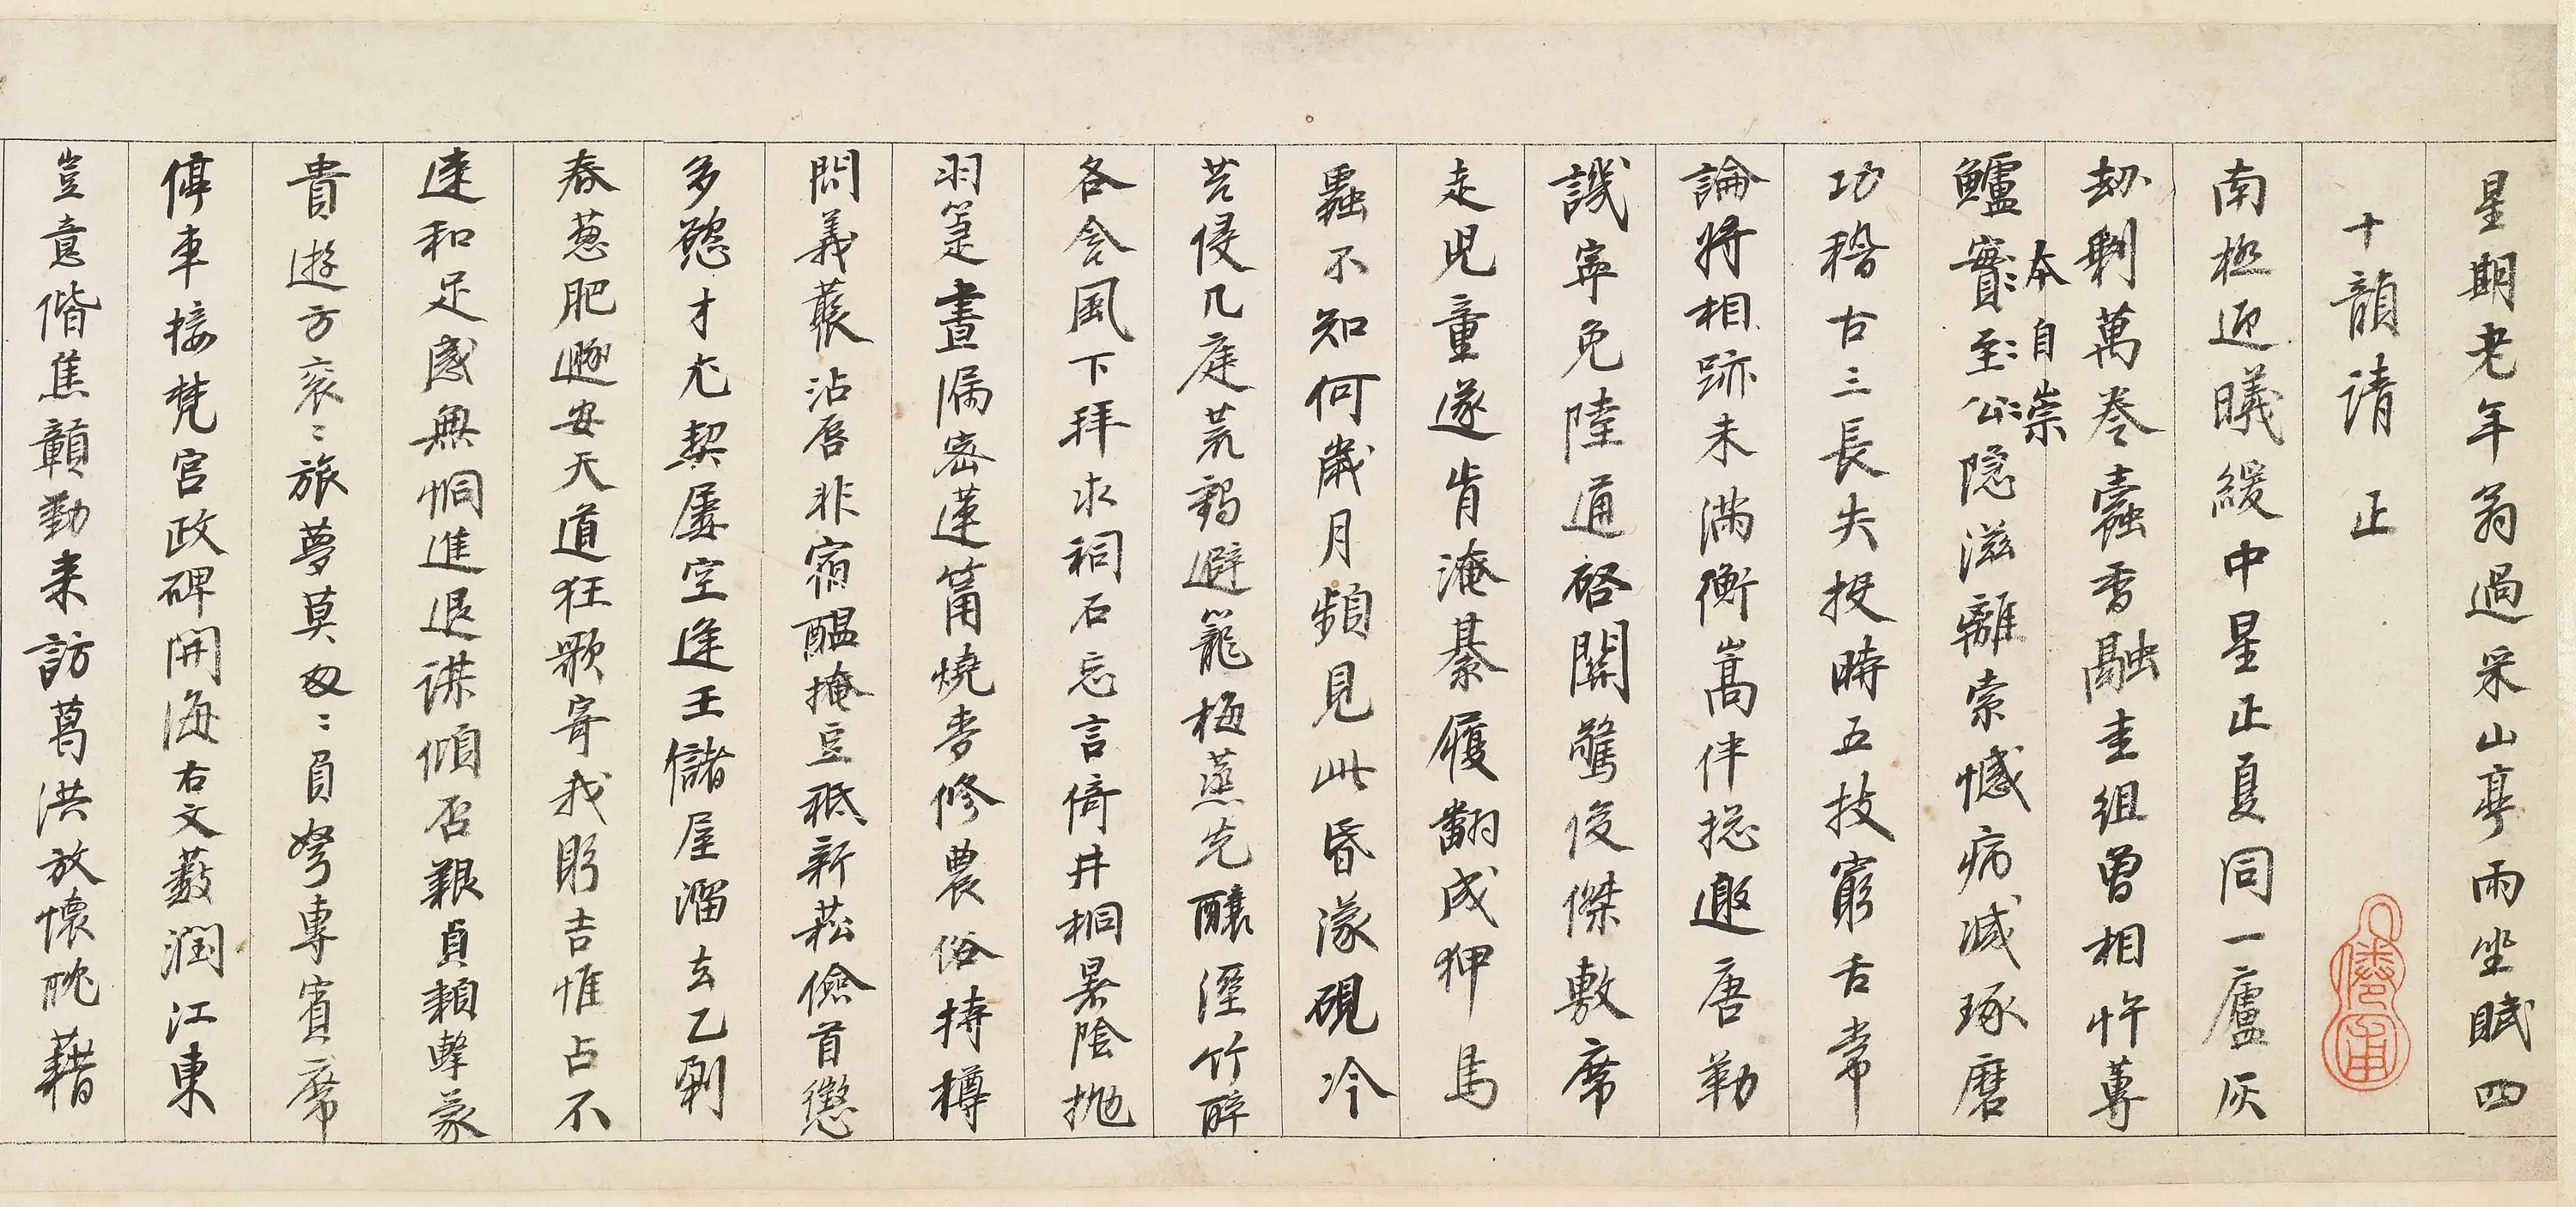 星期老年翁過采山亭雨坐賦四
十韻請 正
南極迎曦緩中星正夏同一廬灰
劫剩萬卷蠹香融圭組曾相忤蓴
鱸實至公隱滋離索憾病減琢磨
本自崇
功稽古三長失投時五技窮舌常
論將相跡未滿衡嵩伴揔邀唐勒
譏寧免陸通啓關驚俊傑敷席
走兒童遂肯淹綦履翻成狎馬
蟲不知何歲月頻見此昏濛硯冷
苔侵几庭荒鶴避籠梅蒸先釀溼竹醉
各含風下拜求祠石忘言倚井桐暴陰拋
羽箑晝漏密蓮筩燒麥修農俗持樽
問義叢沾唇非宿醞掩豆祗新菘儉首懲
多慾才尤契屢空逢王儲屋溜去乙剩
春蔥肥遯安天道狂歌寄我躬吉惟占不
遠和足感無恫進退謀傾否艱貞賴擊蒙
貴遊方袞〻旅夢莫匆〻員嶠專賓席
停車接梵宮政碑開海右文藪潤江東
豈意偕焦贛勤來訪葛洪放懷醜藉